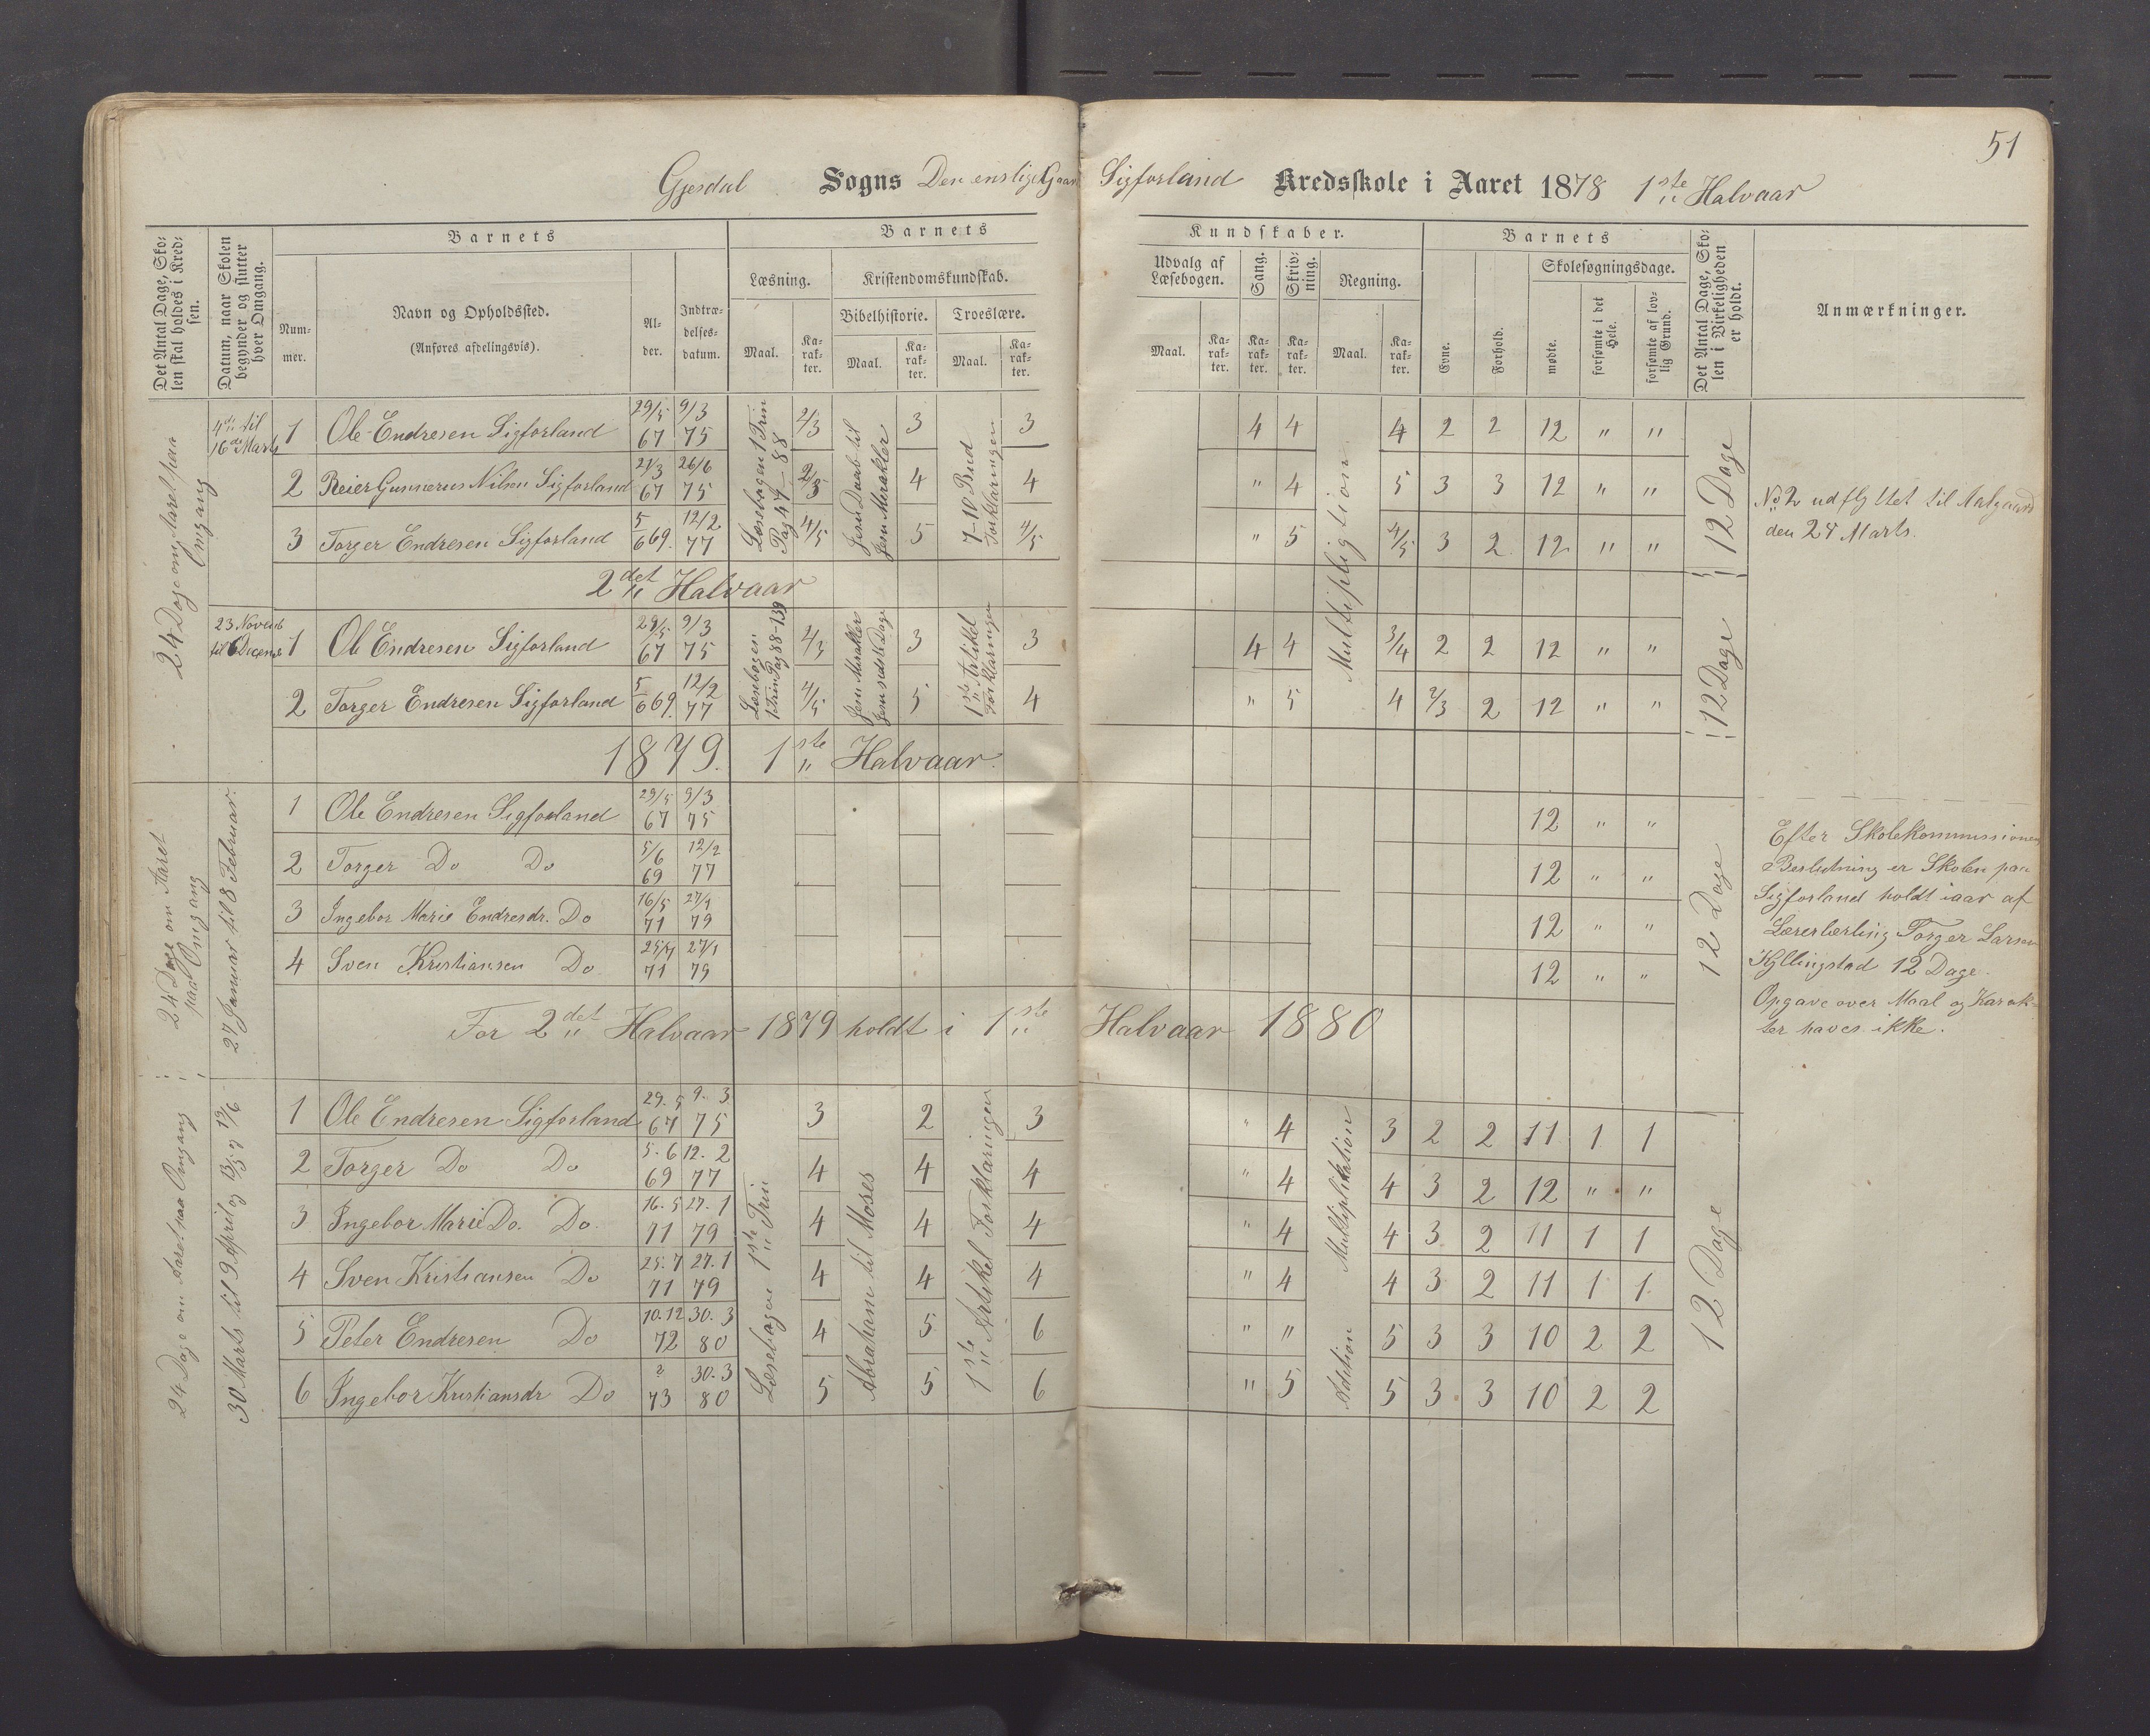 51
Gjesdal Sogns Den enslige Gaard Sigforland Kredsskole i Aaret 1878 1ste Halvaar
Det Antal Dage, Skolen skal holdes i Kredsen.
Datum, naar Skolen begynder og slutter hver Omgang.
Barnets
Nummer.
Navn og Opholdssted.
(Anføres afdelingsvis).
Alder.
Indtrædelsesdatum.
Barnets Kundskaber.
Læsning.
Maal. Karakter.
Kristendomskundskab.
Bibelhistorie. Troeslære.
Maal. Karakter. Maal. Karakter.
Udvalg af Læsebogen.
Maal. Karakter.
Sang. Karakter.
Skrivning. Karakter.
Regning.
Maal. Karakter.
Barnets
Evne. Forhold.
Skolesøgningsdage.
mødte. forsømte i det Hele. forsømte af lovlig Grund.
Det Antal Dage, Skolen i Virkeligheden er holdt.
Anmærkninger.
24 Dage om Aaret paa Omgang
4de til 16de Marts
Læsebogen 1 Trin Pag 47-88
Jesu Daab til Jesu Mirakler
7-10 Bud Forklaringen
Multipligtion
12 Dage
1 Ole Endresen Sigforland 29/5 67 9/3 75 2/3 3 3 4 4 4 2 2 12 " "
2 Reier Gunnerus Nilsen Sigforland 21/3 67 26/6 75 2/3 4 4 " 4 5 3 3 12 " "
3 Torger Endresen Sigforland 5/6 69. 12/2 77 4/5 5 4/5 " 5 4/5 3 2 12 " "
No 2 udflyttet til Aalgaard
den 24 Marts.
2det Halvaar
23 Novemb til 6 Decemb
Læsebogen 1 Trin Pag 88-139
Jesu Mirakler Jesu sidste Dage
1ste Artikel Forklaringen
12 Dage
1 Ole Endresen Sigforland 29/5 67 9/3 75 2/3 3 3 4 4 3/4 2 2 12 " "
2 Torger Endresen Sigforland 5/6 69. 12/2 77 4/5 5 4 " 5 4 2/3 2 12 " "
1879. 1ste Halvaar.
24 Dage om Aaret paa Omgang
27 Januar til 8 Februar.
12 Dage
1 Ole Endresen Sigforland 29/5 67 9/3 75 12 " "
2 Torger Do Do 5/6 69 12/2 77 12 " "
3 Ingebor Marie Endresdr. Do 16/5 71 27/1 79 12 " "
4 Sven Kristiansen Do 25/7 71 27/1 79 12 " "
Efter Skolekommissionens
Beslutning er Skolen paa
Sigforland holdt iaar af
Lærerlærling Torger Larsen
Kyllingstad 12 Dage.
Opgave over Maal og Karak-
ter haves ikke.
For 2det Halvaar 1879 holdt i 1ste Halvaar 1880
24 Dage om Aaret paa Omgang
30 Marts til 9 April og
Læsebogen 1ste Trin
Abraham til Moses
1ste Artikel Forklaringen
Multiplikation
Addition
12 Dage
1 Ole Endresen Sigforland 29. 5 67 9. 3 75 3 2 3 " 4 3 2 2 11 1 1
2 Torger Do Do 5. 6 69 12. 2 77 4 4 4 " 4 4 3 2 12 " "
3 Ingebor Marie Do. Do. 16. 5 71 27. 1 79 4 4 4 " 4 4 3 2 11 1 1
4 Sven Kristiansen Do 25. 7 71 27. 1 79 4 4 4 " 4 4 3 2 11 1 1
5 Peter Endresen Do 10. 12 72 30. 3 80 4 5 6 " " 5 3 3 10 2 2
6 Ingebor Kristiansdr Do 73 30. 3 80 5 5 6 " 5 5 3 3 10 2 2